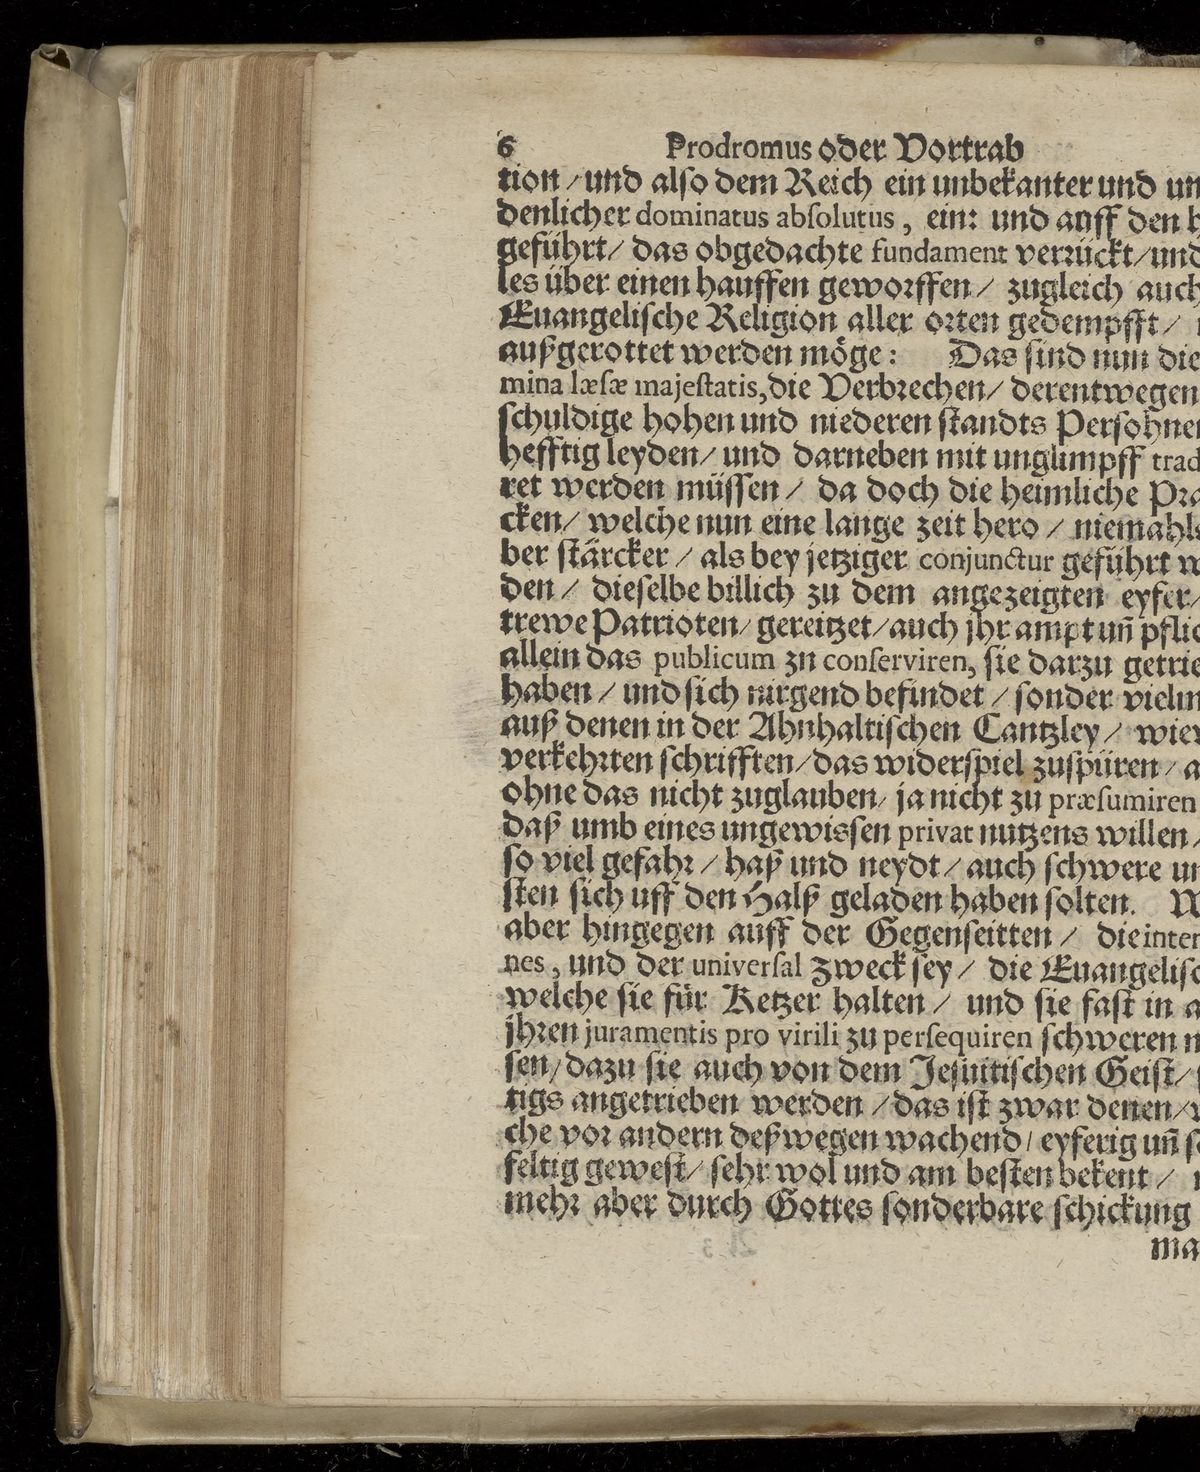 6 Prodromus oder Vortrab
tion / und also dem Reich ein unbekanter und un
denlicher dominatus absolutus, ein: und auff den h
geführt / das obgedachte fundament verrückt / und
les über einen hauffen geworffen / zugleich auch
Euangelische Religion aller orten gedempfft /
außgerottet werden möge: Das sind nun die
mina læsæ majestatis, die Verbrechen / derentwegen
schuldige hohen und niederen standts Persohnen
hefftig leyden / und darneben mit unglimpff trad
ret werden müssen / da doch die heimliche Pra
cken / welche nun eine lange zeit hero / niemahls
ber stärcker / als bey jetziger conjunctur geführt w
den / dieselbe billich zu dem angezeigten eyfer /
trewe Patrioten / gereitzet / auch jhr ampt uñ pflic
allein das publicum zn conserviren, sie darzu getrie
haben / und sich nirgend befindet / sonder vielm
auß denen in der Ahnhaltischen Cantzley / wiew
verkehrten schrifften / das widerspiel zuspüren / a
ohne das nicht zuglauben / ja nicht zu præsumiren
daß umb eines ungewissen privat nutzens willen /
so viel gefahr / haß und neydt / auch schwere un
sten sich uff den Halß geladen haben solten. W
aber hingegen auff der Gegenseitten / die inten
nes, und der universal zweck sey / die Euangelisc
welche sie für Ketzer halten / und sie fast in a
jhren juramentis pro virili zu persequiren schweren m
sen / dazu sie auch von dem Jesuitischen Geist /
tigs angetrieben werden / das ist zwar denen / w
che vor andern deßwegen wachend / eyferig uñ so
feltig gewest / sehr wol und am besten bekent /
mehr aber durch Gottes sonderbare schickung
ma